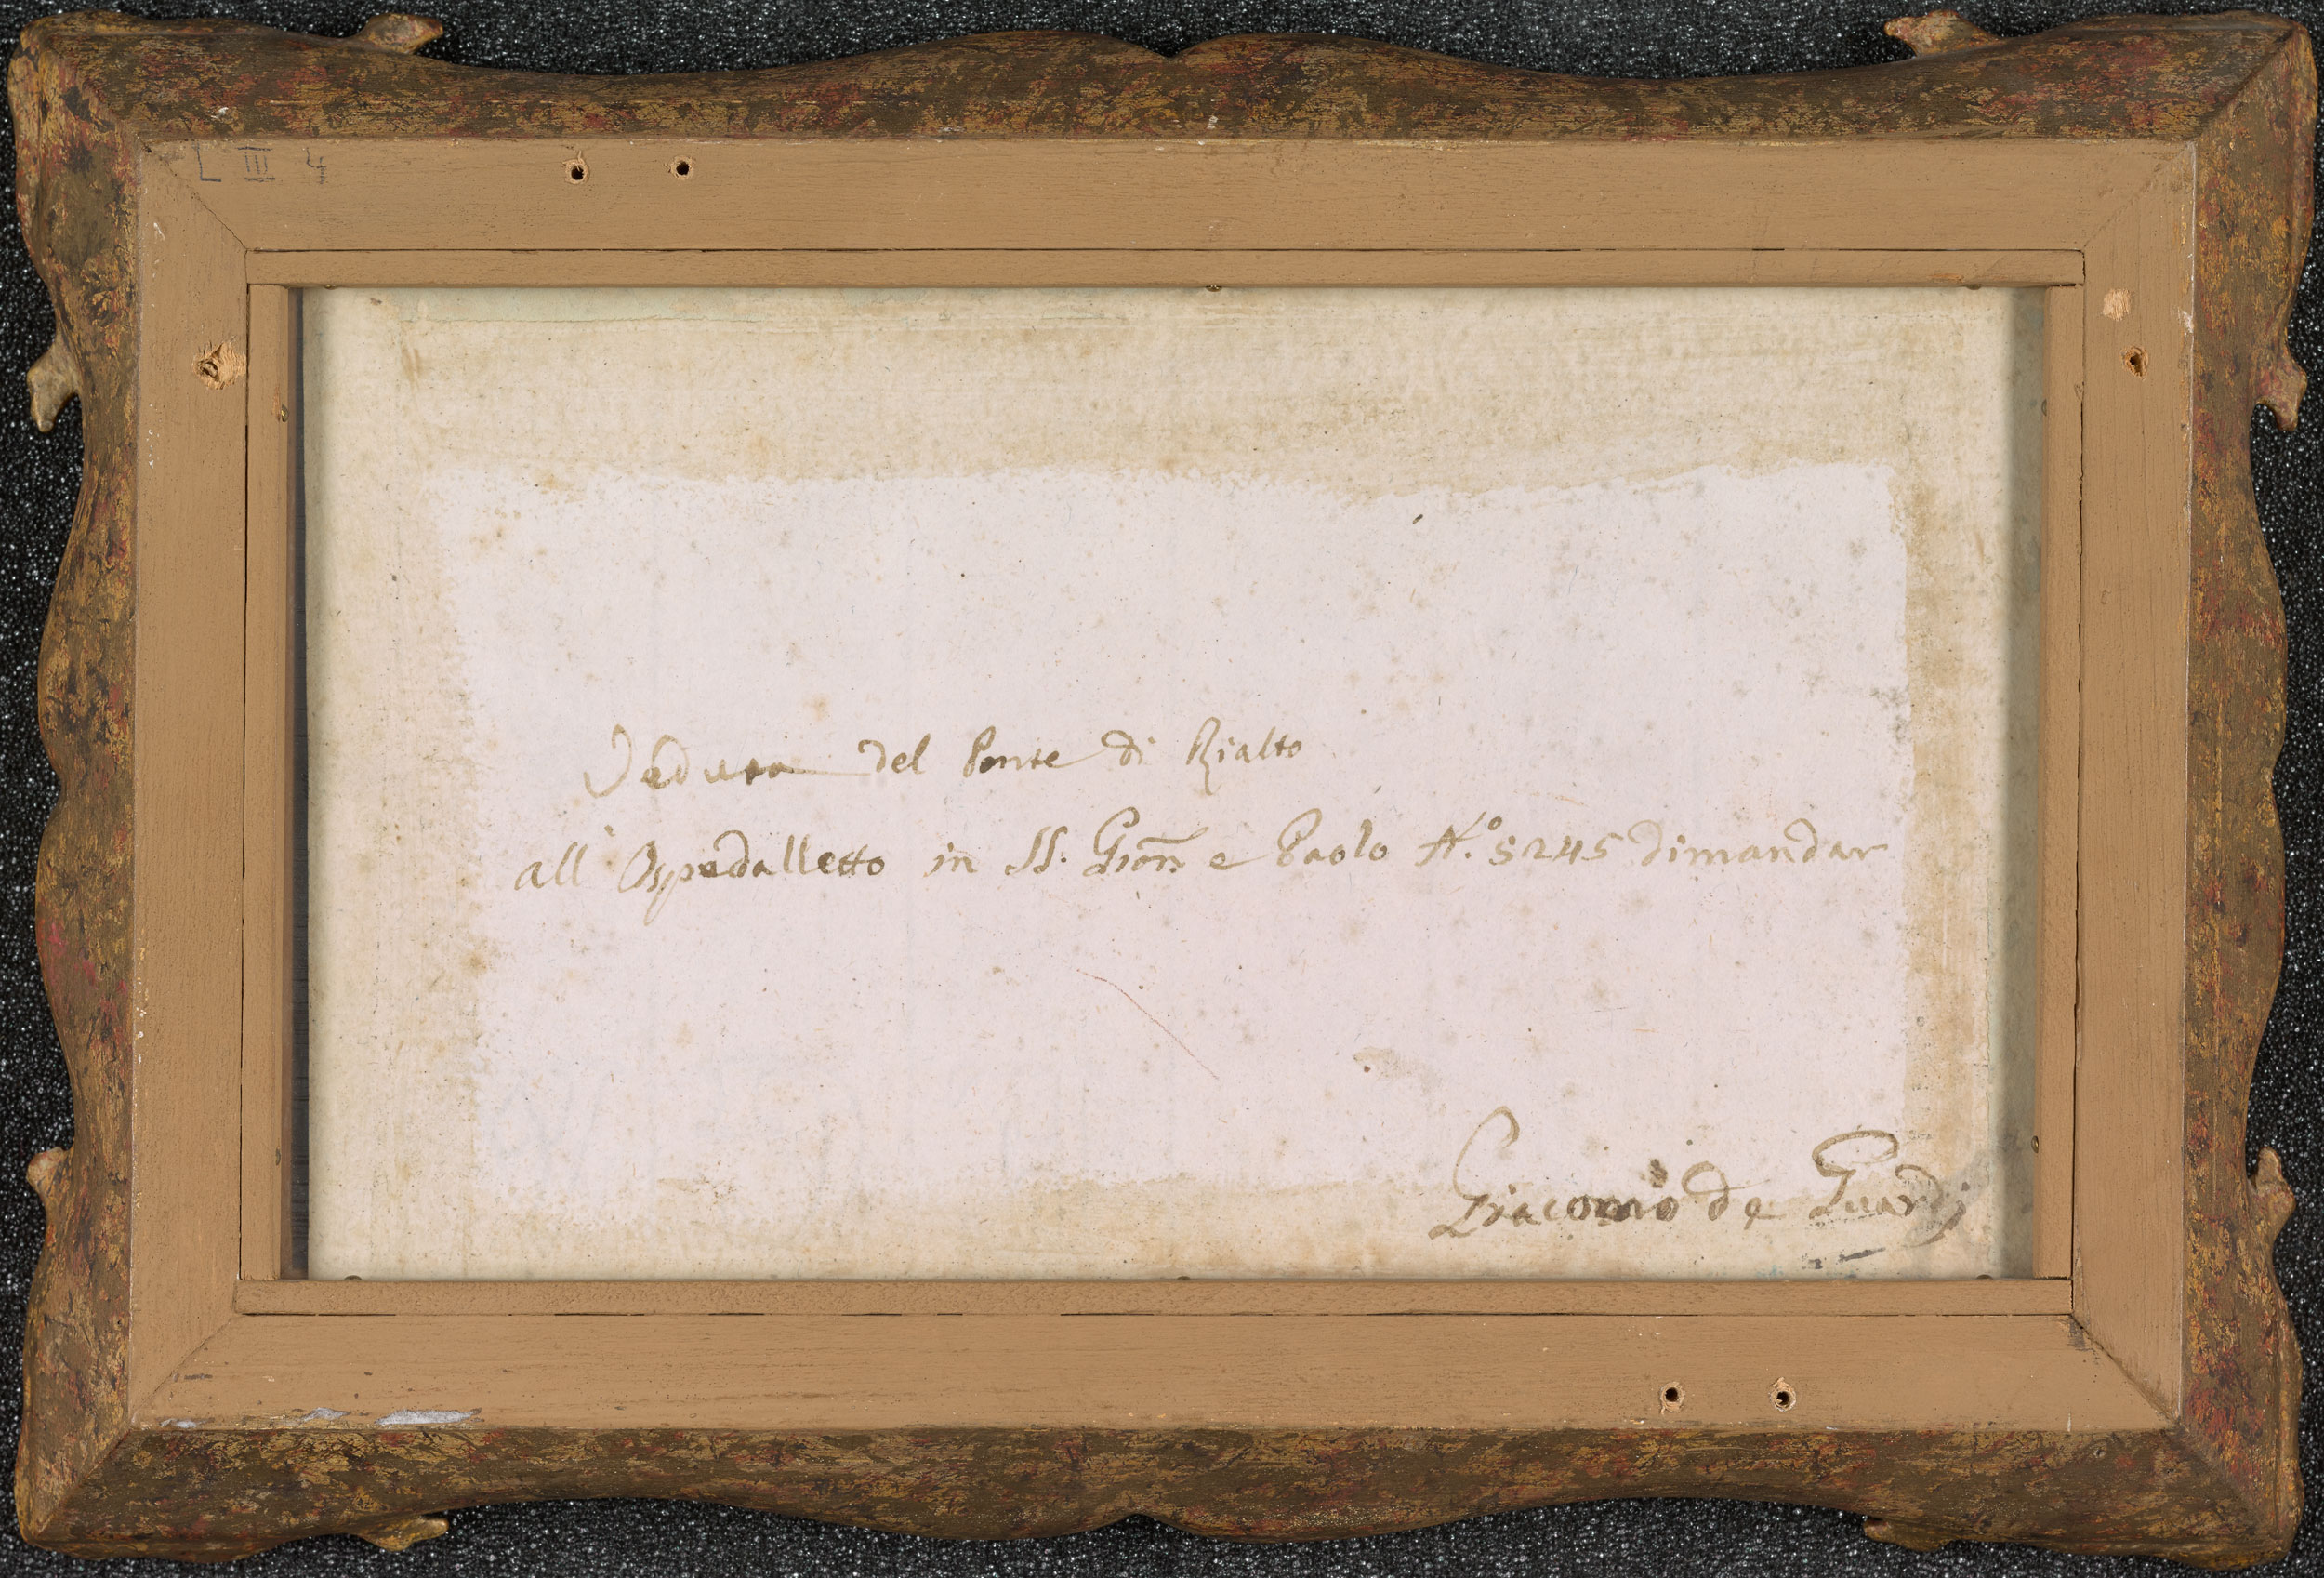 L III 4
Veduta del Ponte di Rialto
all' Ospedalletto in SS. Gioñ e Paolo N.º 5245 dimandar
Giacomo de Guardi